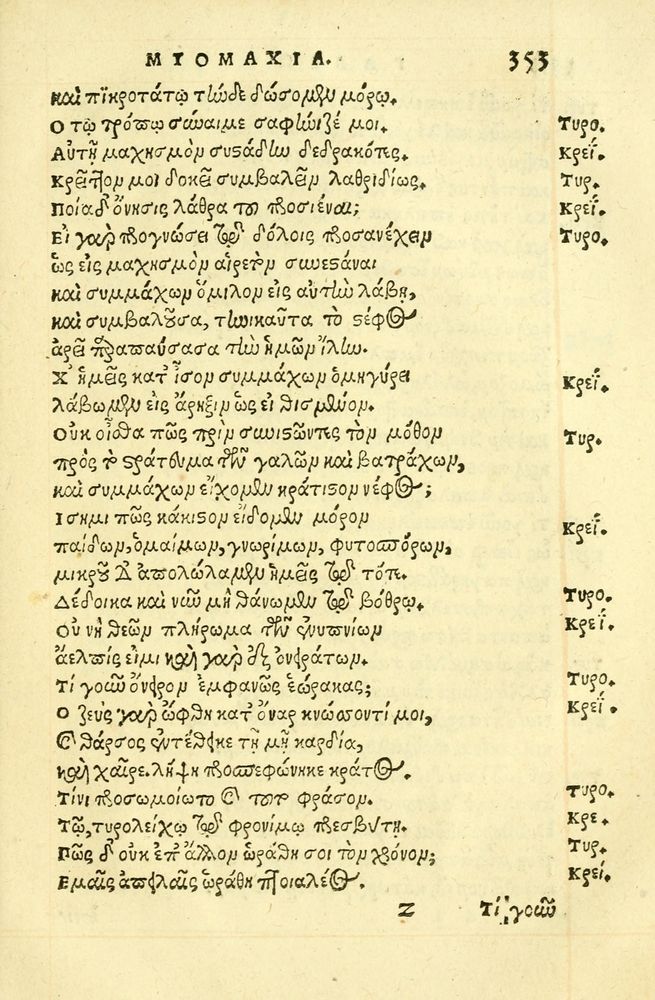 ΜΥΟΜΑΧΙΑ. 353
καὶ πικροτάτῳ τῷδε δώσομεν μόρῳ.
Ο τῷ τρόπῳ σύναιμε σαφήνιζέ μοι. Τυρο.
Αὐτῇ μαχησμὸν συστάδην δεδρακότες. Κρεΐ.
Κρεῖττον μοι δοκεῖ συμβαλεῖν λαθριδίως. Τυρ.
Ποία δ' ὄνησις λάθρα του προσιέναι; Κρεΐ.
Εἰ γὰρ προγνώσει τοῖς δόλοις προσανέχειν Τυρο.
ὡς εἰς μαχησμὸν αἱρετὸν συνεστάναι
καὶ συμμάχων ὅμιλον εἰς αὐτὴν λάβῃ,
καὶ συμβαλοῦσα, τηνικαῦτα τὸ στέφος
ἀρεῖ πραπαύσασα τὴν ἡμῶν ἴλην.
Χ' ἡμεῖς κατ' ἶσον συμμάχων ὁμηγύρει Κρεΐ.
λάβωμεν εἰς ἄρηξιν ὡς εἰθισμένον.
Οὐκ οἶσθα πῶς πρὶν συνιστῶντες τὸν μόθον Τυρ.
πρὸς τὸ στράτευμα τῶν γαλῶν καὶ βατράχων,
καὶ συμμάχων εἴχομεν κράτιστον νέφος;
Ισημι πῶς κάκιστον εἴδομεν μόρον Κρεΐ.
παίδων, ὁμαίμων, γνωρίμων, φυτοσπόρων,
μικροῦ δ' ἀπολώλαμεν ἡμεῖς τότε.
Δέδοικα καὶ νῦν μὴ θάνωμεν τῷ βόθρῳ. Τυρο.
Οὐ νὴ θεῶν πλήρωμα τῶν ἐνυπνίων Κρεΐ.
ἄελπίς εἰμι καὶ γὰρ ἐξ ὀνειράτων.
Τί γοῦν ὄνειρον ἐμφανῶς ἑώρακας; Τυρο.
Ο ζεὺς γὰρ ὤφθη κατ' ὄναρ κνώσσοντί μοι, Κρεΐ.
καὶ θάρσος ἐντέθεικε τῇ μῇ καρδίᾳ,
καὶ χαῖρε. λήψῃ προσπεφώνηκε κράτος.
Τίνι προσωμοίωτο καὶ τοῦτο φράσον. Τυρο.
Τῷ, τυρολείχῳ τῷ φρονίμῳ πρεσβύτῃ. Κρε.
Πῶς δ' οὐκ ἐπ' ἄλλον ὡράθη σοι τὸν χρόνον; Τυρ.
Εμαῖς ἀπειλαῖς ὡράθη πτοιαλέος. Κρεΐ.
Z Τί γοῦν